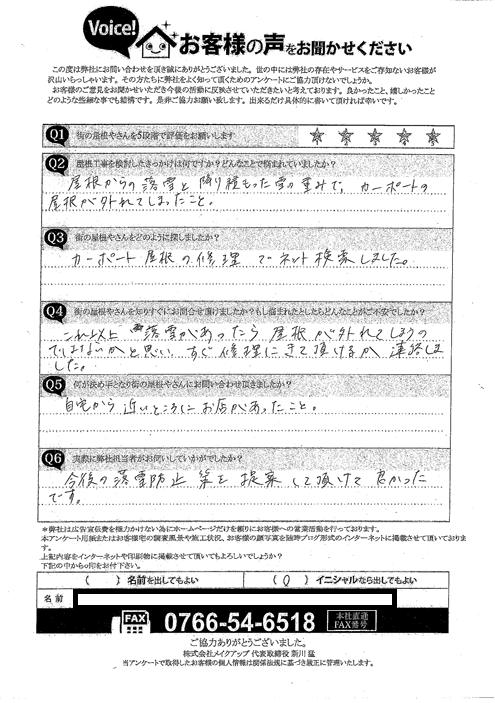 Voice!
お客様の声をお聞かせください
この度は弊社にお問い合わせを頂き誠にありがとうございました。世の中には弊社の存在やサービスをご存知ないお客様が
沢山いらっしゃいます。その方たちに弊社をよく知って頂くためのアンケートにご協力頂けないでしょうか。
お客様のご意見をお聞かせいただき今後の活動に反映させていただきたいと考えております。良かったこと、嬉しかったこと
どのような些細な事でも結構です。是非ご協力お願い致します。出来るだけ具体的に書いて頂ければ幸いです。
Q1 街の屋根やさんを5段階で評価をお願いします ★ ★ ★ ★ ★
Q2 屋根工事を検討したきっかけは何ですか?どんなことで悩まれていましたか?
屋根からの落雪と降り積もった雪の重みで、カーポートの
屋根が外れてしまったこと。
Q3 街の屋根やさんをどのように探しましたか?
カーポート屋根の修理でネット検索しました。
Q4 街の屋根やさんを知りすぐにお問合せ頂けますか?もし悩まれたとしたらどんなことがご不安でしたか?
これ以上落雪があったら屋根が外れてしまうの
ではないかと思い、すぐ修理にきて頂けるか連絡しま
した。
Q5 何が決め手となり街の屋根やさんにお問い合わせ頂きましたか?
自宅から近いところにお店があったこと。
Q6 実際に弊社担当者がお伺いしていかがでしたか?
今後の落雪防止策を提案して頂けて良かった
です。
*弊社は広告宣伝費を極力かけない為にホームページだけを頼りにお客様への営業活動を行っております。
本アンケート用紙またはお客様宅の調査風景や施工状況、お客様の顔写真を随時ブログ形式のインターネットに掲載させて頂いておりま
す。
上記内容をインターネットや印刷物に掲載させて頂いてもよろしいでしょうか?
下記の中から○印をお付下さい。
( ) 名前を出してもよい ( ○ ) イニシャルなら出してもよい
名前
FAX 0766-54-6518 本社直通 FAX番号
ご協力ありがとうございました。
株式会社メイクアップ 代表取締役 荊川 猛
当アンケートで取得したお客様の個人情報は関係法規に基づき厳正に管理いたします。